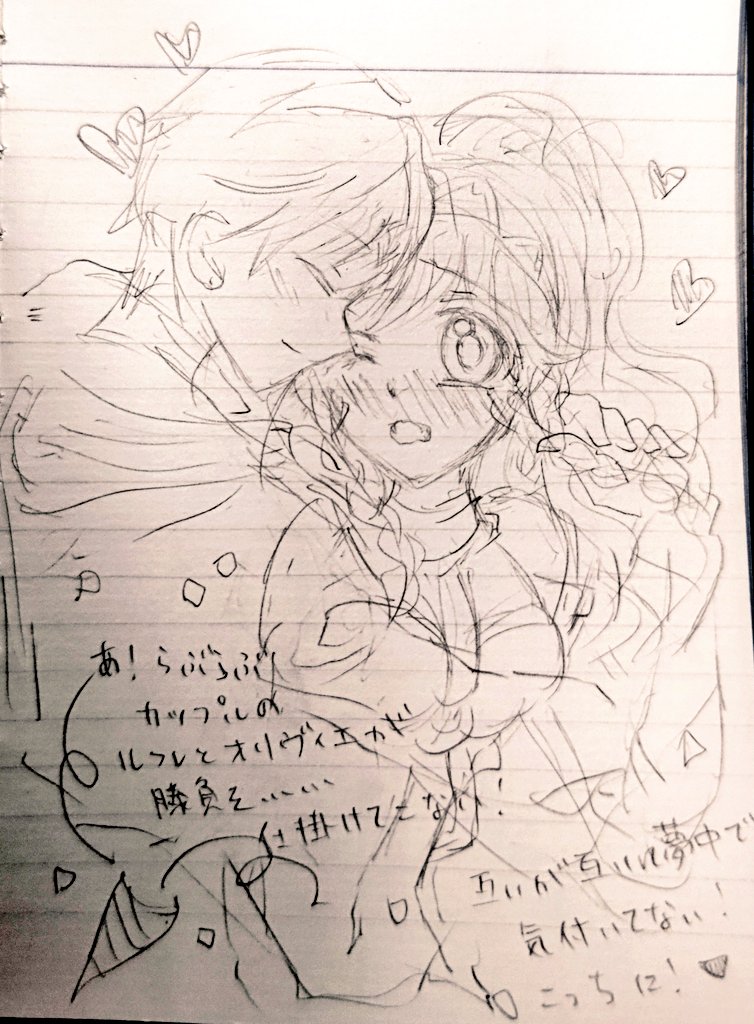 あ！らぶらぶ
カップルの
ルフレとオリヴィエが
勝負を……
仕掛けてこない！
互いが互いに夢中で
気付いてない！
こっちに！♥